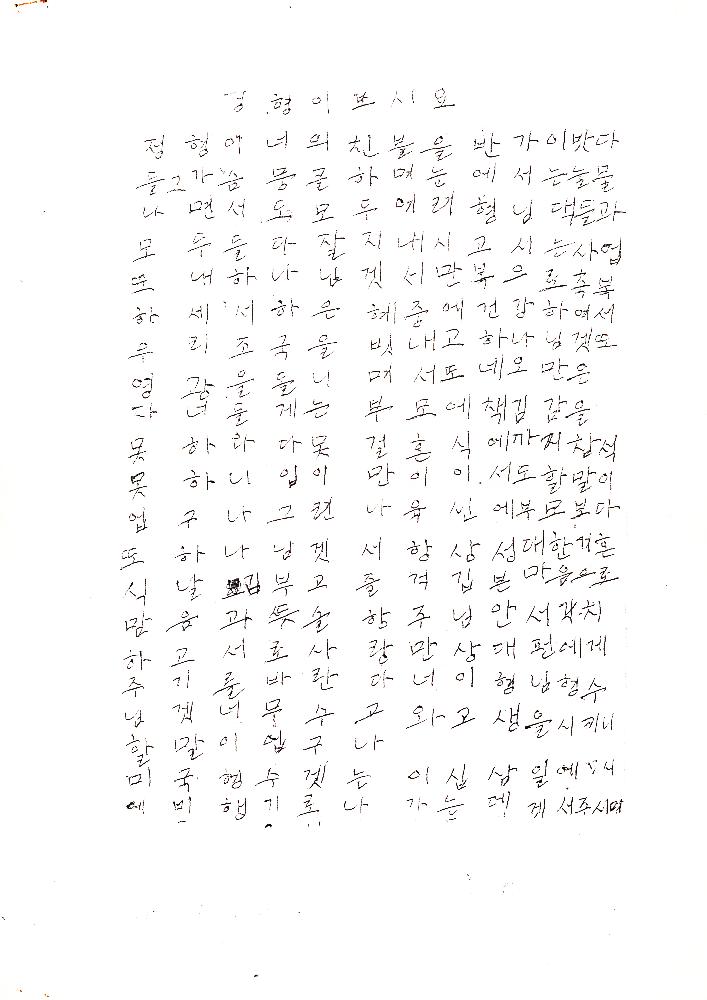 정 형 이 쁘 시 요
정 형 어 너 의 친 불 을 반 가 이 밧 다
들 그 가 슴 뭉 클 하 며 눈 에 서 는 눌 물
나 면 서 요 모 두 여 러 형 님 댁 들 과
모 두 들 다 잘 지 내 시 고 시 는 사 업
또 내 하 나 님 겟 서 만 복 으 로 축 복
하 세 서 하 은 혜 중 에 건 강 하 여 서
우 리 조 국 을 빗 내 고 하 나 님 겟 또
영 광 을 들 니 며 서 또 네 오 만 은
다 녀 들 게 는 부 모 에 책 김 감 을
못 하 라 다 못 결 혼 식 에 까 지 참 석
못 하 니 입 이 만 이 이 서 도 할 말 이
업 구 나 그 련 나 육 신 에 부 모 보 다
또 하 나 님 겟 서 항 상 성 대 한 겨 혼
식 날 김 부 고 즐 격 깁 본 마 음 으 로
맘 음 과 뜻 솔 함 주 님 안 서 각 치
하 고 서 로 사 랑 만 상 대 편 에 게
주 기 를 바 란 다 너 이 형 님 형 수
님 겟 너 무 수 고 와 고 생 을 시 키 니
할 말 이 업 구 나
미 국 형 수 겟 는 이 십 삼 일 에
에 비 행 기 로 나 가 는 데 게 서 주 시 며